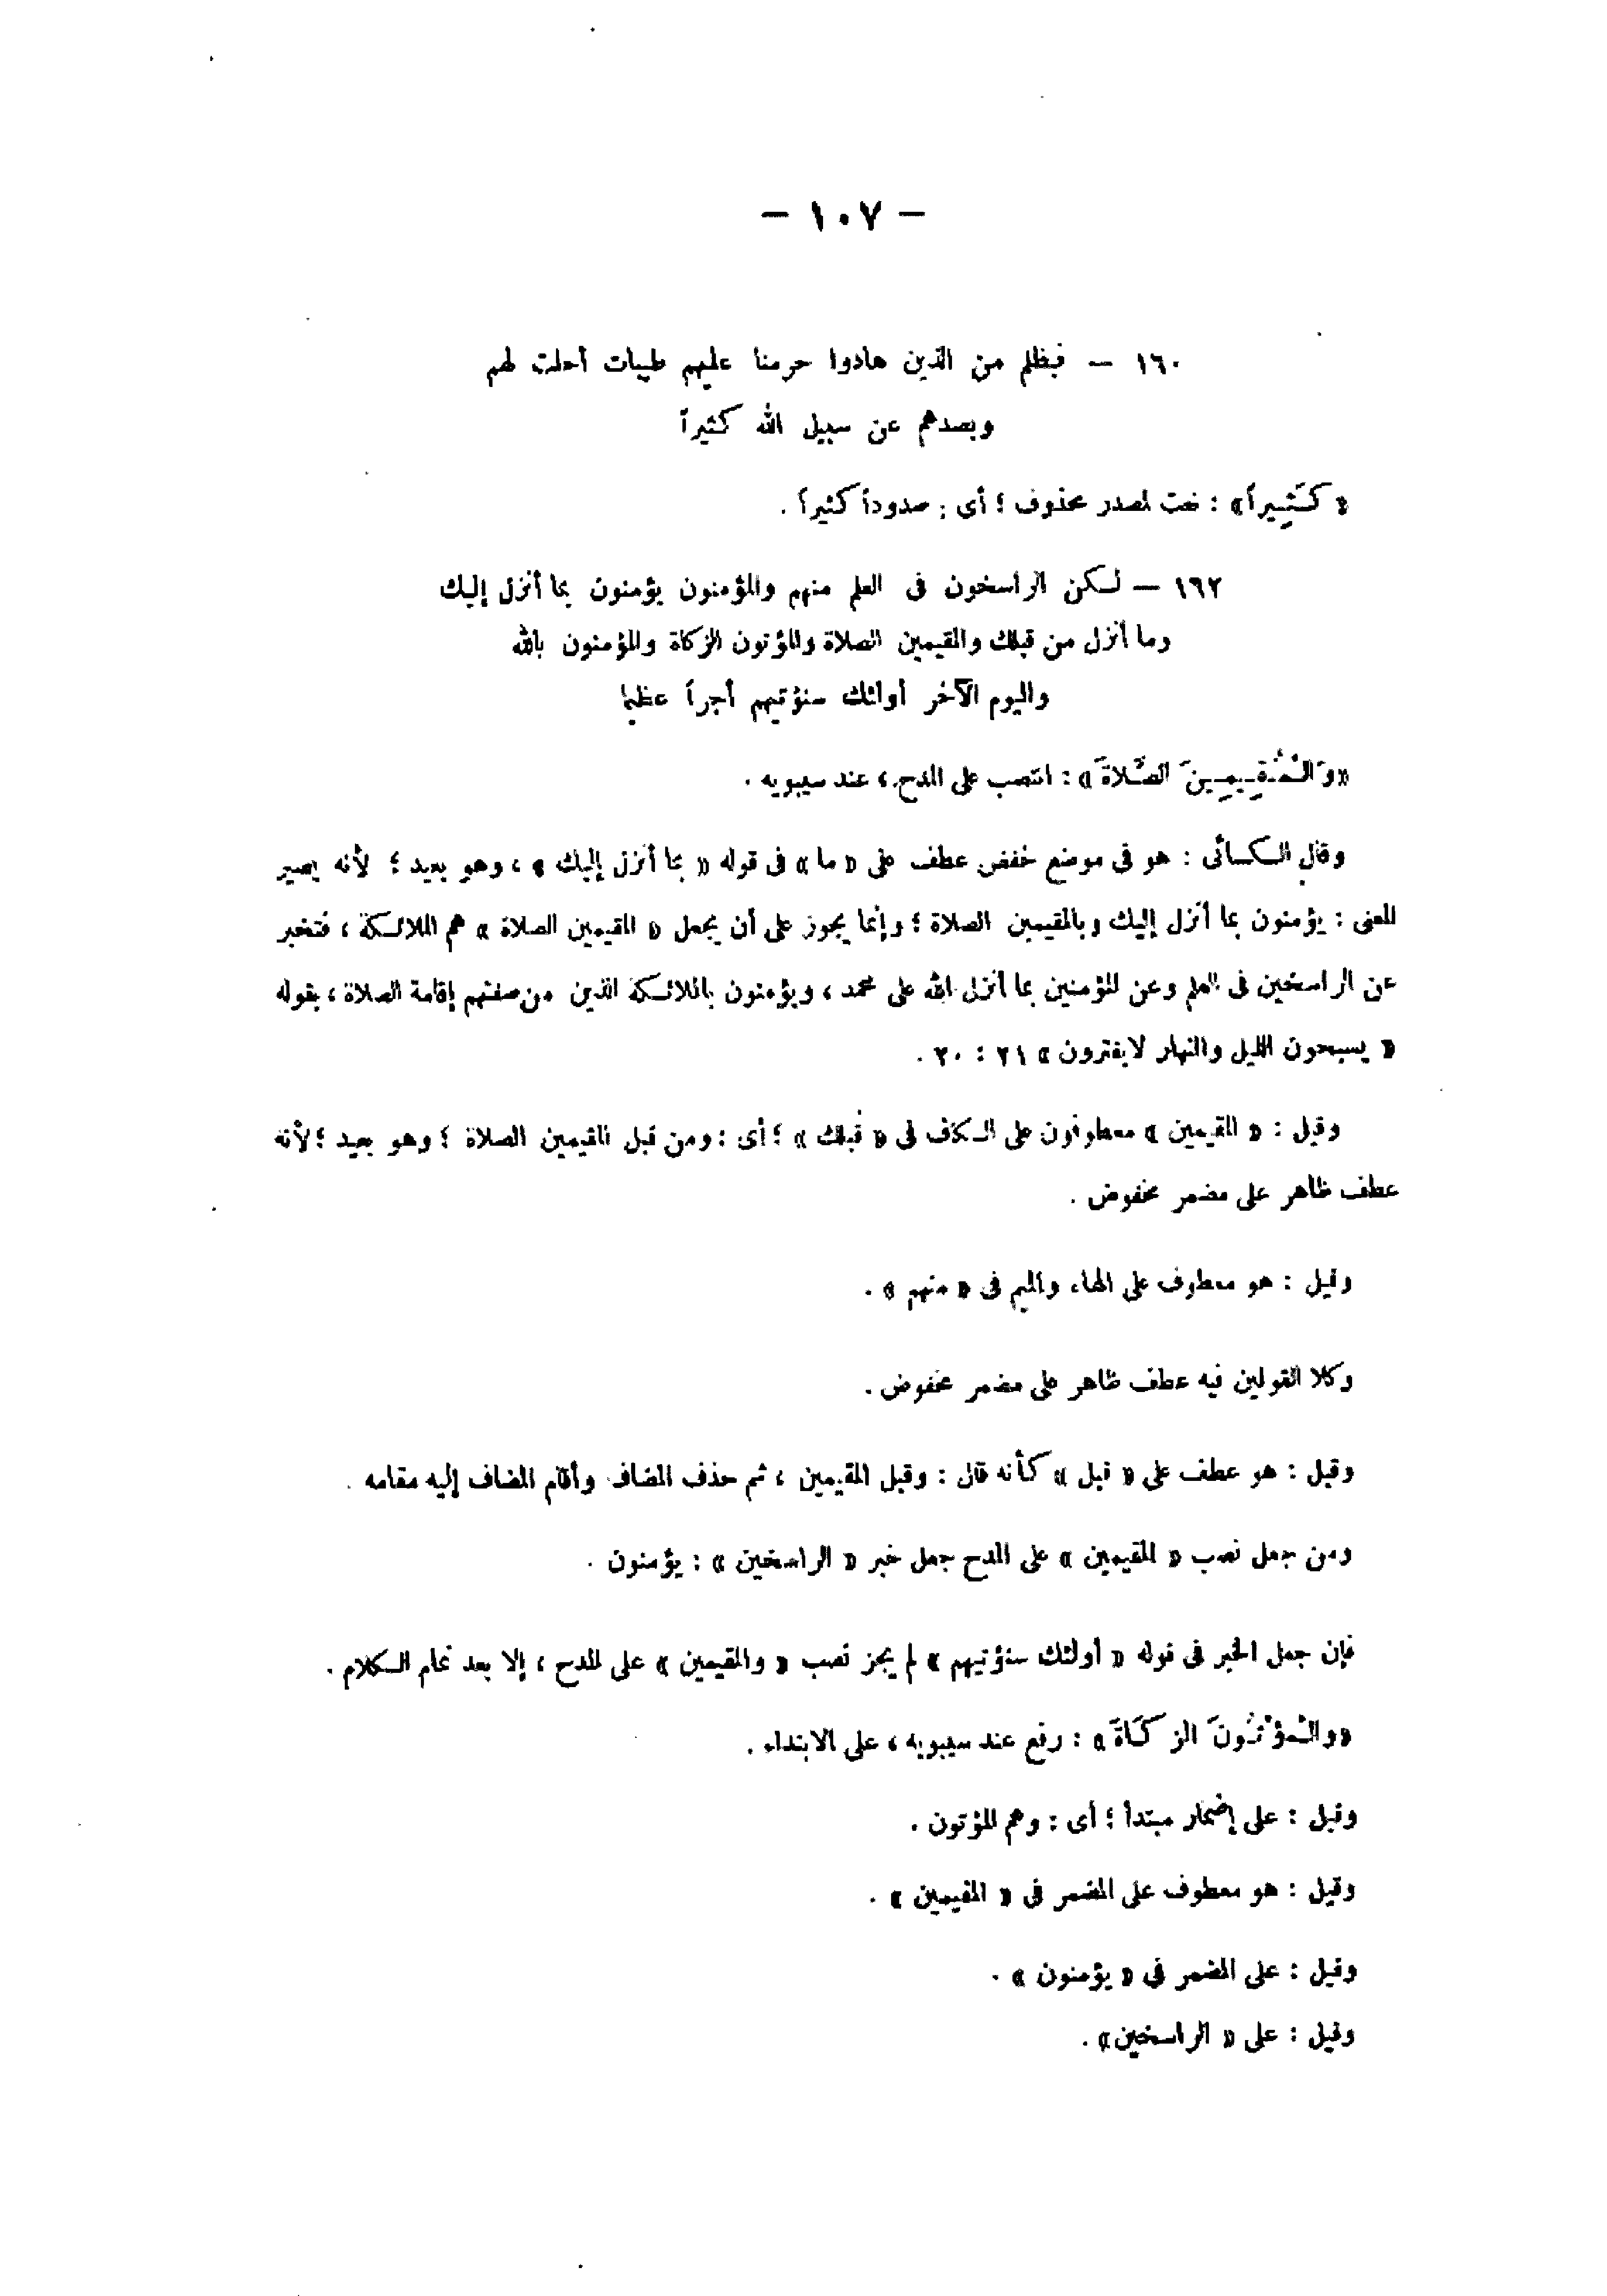 — ١٠٧ —
١٦٠ — فبظلم من الذين هادوا حرمنا عليهم طيبات أحلت لهم
وبصدهم عن سبيل الله كثيراً
« كَثِيراً» : نعت لمصدر محذوف ؛ أى : صدوداً كثيراً .
١٦٢ — لكن الراسخون فى العلم منهم والمؤمنون يؤمنون بما أنزل إليك
وما أنزل من قبلك والمقيمين الصلاة والمؤتون الزكاة والمؤمنون بالله
واليوم الآخر أولئك سنؤتيهم أجراً عظيما
«وَالْمُقِيمِينَ الصَّلاةَ» : انتصب على المدح ، عند سيبويه .
وقال الكسائى : هو فى موضع خفض عطف على « ما » فى قوله « بما أنزل إليك » ، وهو بعيد ؛ لأنه يصير
المعنى : يؤمنون بما أنزل إليك وبالمقيمين الصلاة ؛ وإنما يجوز على أن يجعل « المقيمين الصلاة » هم الملائكة ، فتخبر
عن الراسخين فى العلم وعن المؤمنين بما أنزل الله على محمد ، ويؤمنون بالملائكة الذين من صفتهم إقامة الصلاة ، بقوله
« يسبحون الليل والنهار لايفترون » ٢١ : ٢٠ .
وقيل : « المقيمين » معطوفون على الكاف فى « قبلك » ؛ أى : ومن قبل المقيمين الصلاة ؛ وهو بعيد ؛ لأنه
عطف ظاهر على مضمر مخفوض .
وقيل : هو معطوف على الهاء والميم فى « منهم » .
وكلا القولين فيه عطف ظاهر على مضمر مخفوض .
وقيل : هو عطف على « قبل » كأنه قال : وقبل المقيمين ، ثم حذف المضاف وأقام المضاف إليه مقامه .
ومن جعل نصب « المقيمين » على المدح جعل خبر « الراسخين » : يؤمنون .
فإن جعل الخبر فى قوله « أولئك سنؤتيهم » لم يجز نصب « والمقيمين » على المدح ، إلا بعد تمام الكلام .
«والْمُؤْتُونَ الزكَاةَ» : رفع عند سيبويه ، على الابتداء .
وقيل : على إضمار مبتدأ ؛ أى : وهم المؤتون .
وقيل : هو معطوف على المضمر فى « المقيمين » .
وقيل : على المضمر فى « يؤمنون » .
وقيل : على « الراسخين» .